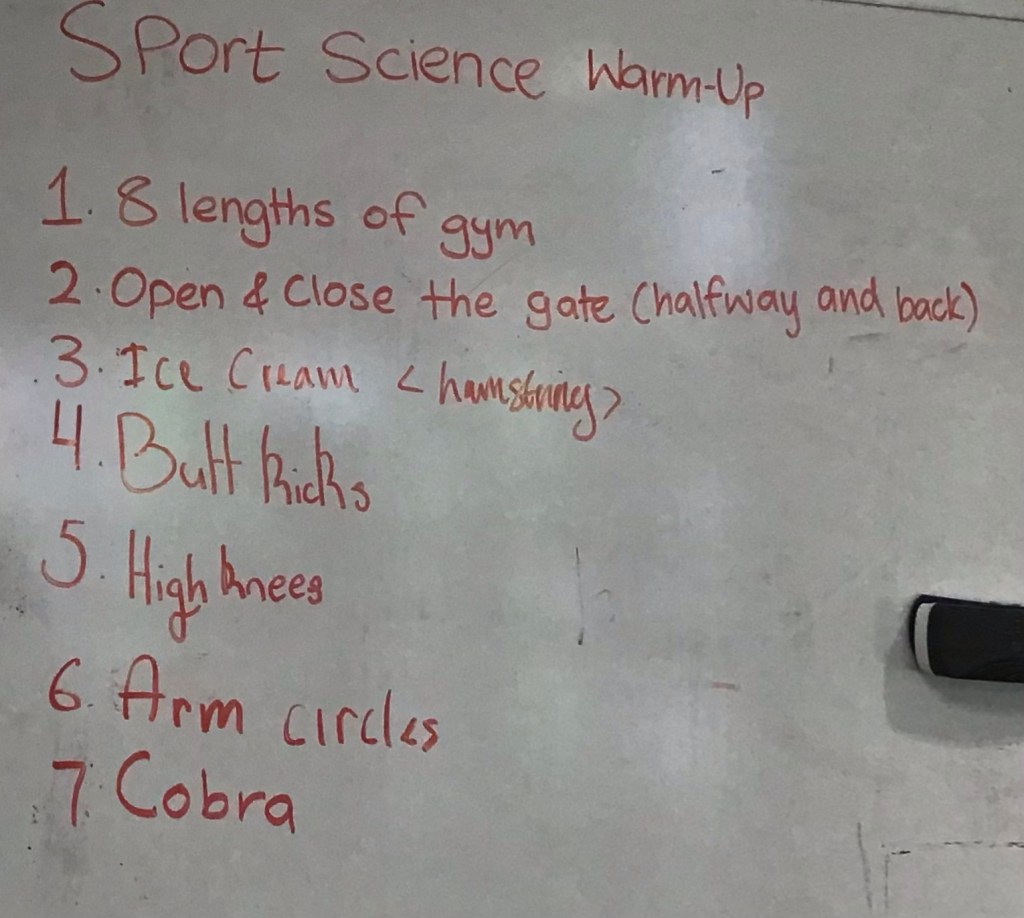 Sport Science Warm-Up
1. 8 lengths of gym
2. Open & Close the gate (halfway and back)
3. Ice Cream <hamstring>
4. Butt kicks
5. High knees
6. Arm circles
7. Cobra